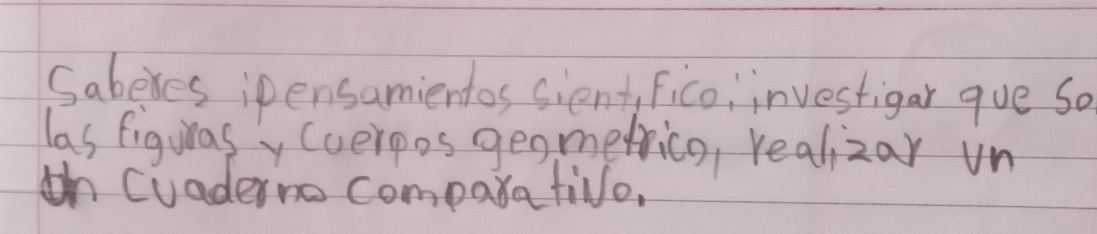 Saberes ipensamientos sientifico: investigar que so
las figuras y cuerpos geometrico, realizar un
un cuaderno comparativo.